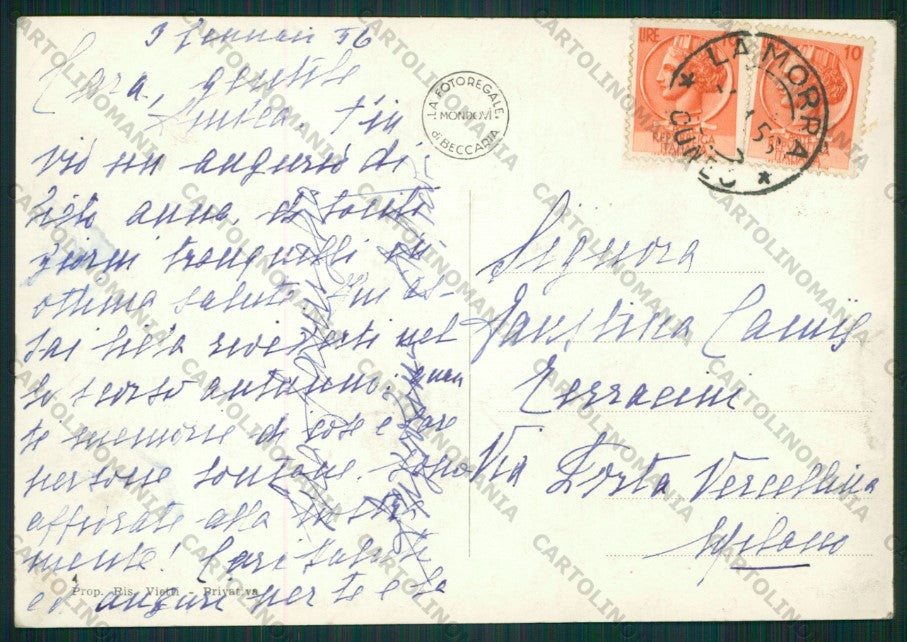 3 Gennaio 56
Cara, gentile
Amica. T'in
vio un augurio di
lieto anno, di tanti
giorni tranquilli in
ottima salute. Fui as-
sai lieta rivederti nel
lo scorso autunno; quan
te memorie di cose e care
persone lontane sono
affiorate alla nostra
mente! Cari saluti
ed auguri per te e
LA FOTOREGALE
MONDOVI
di BECCARIA
LIRE
10
LA MORRA
CUNEO
Signora
Faustina
Terracini
Via Porta Vercellina
Milano
Prop. Ris. Vietti - Privativa
CARTOLINOMANIA